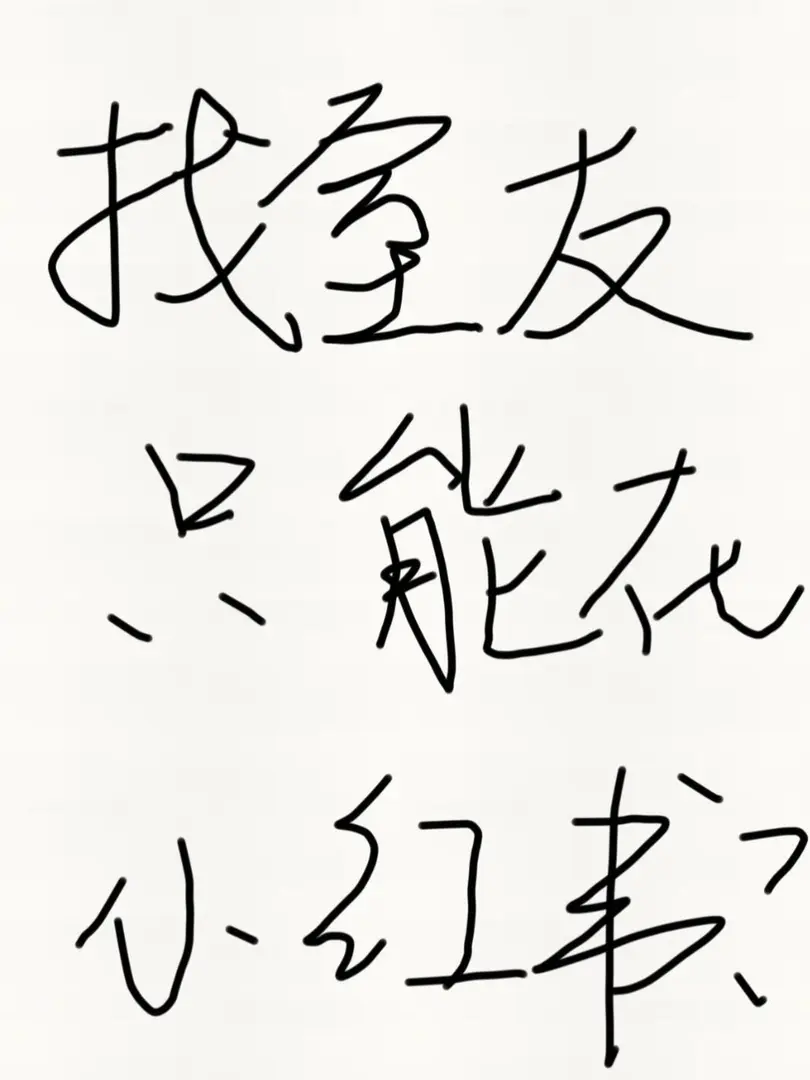 找室友
只能在
小红书？